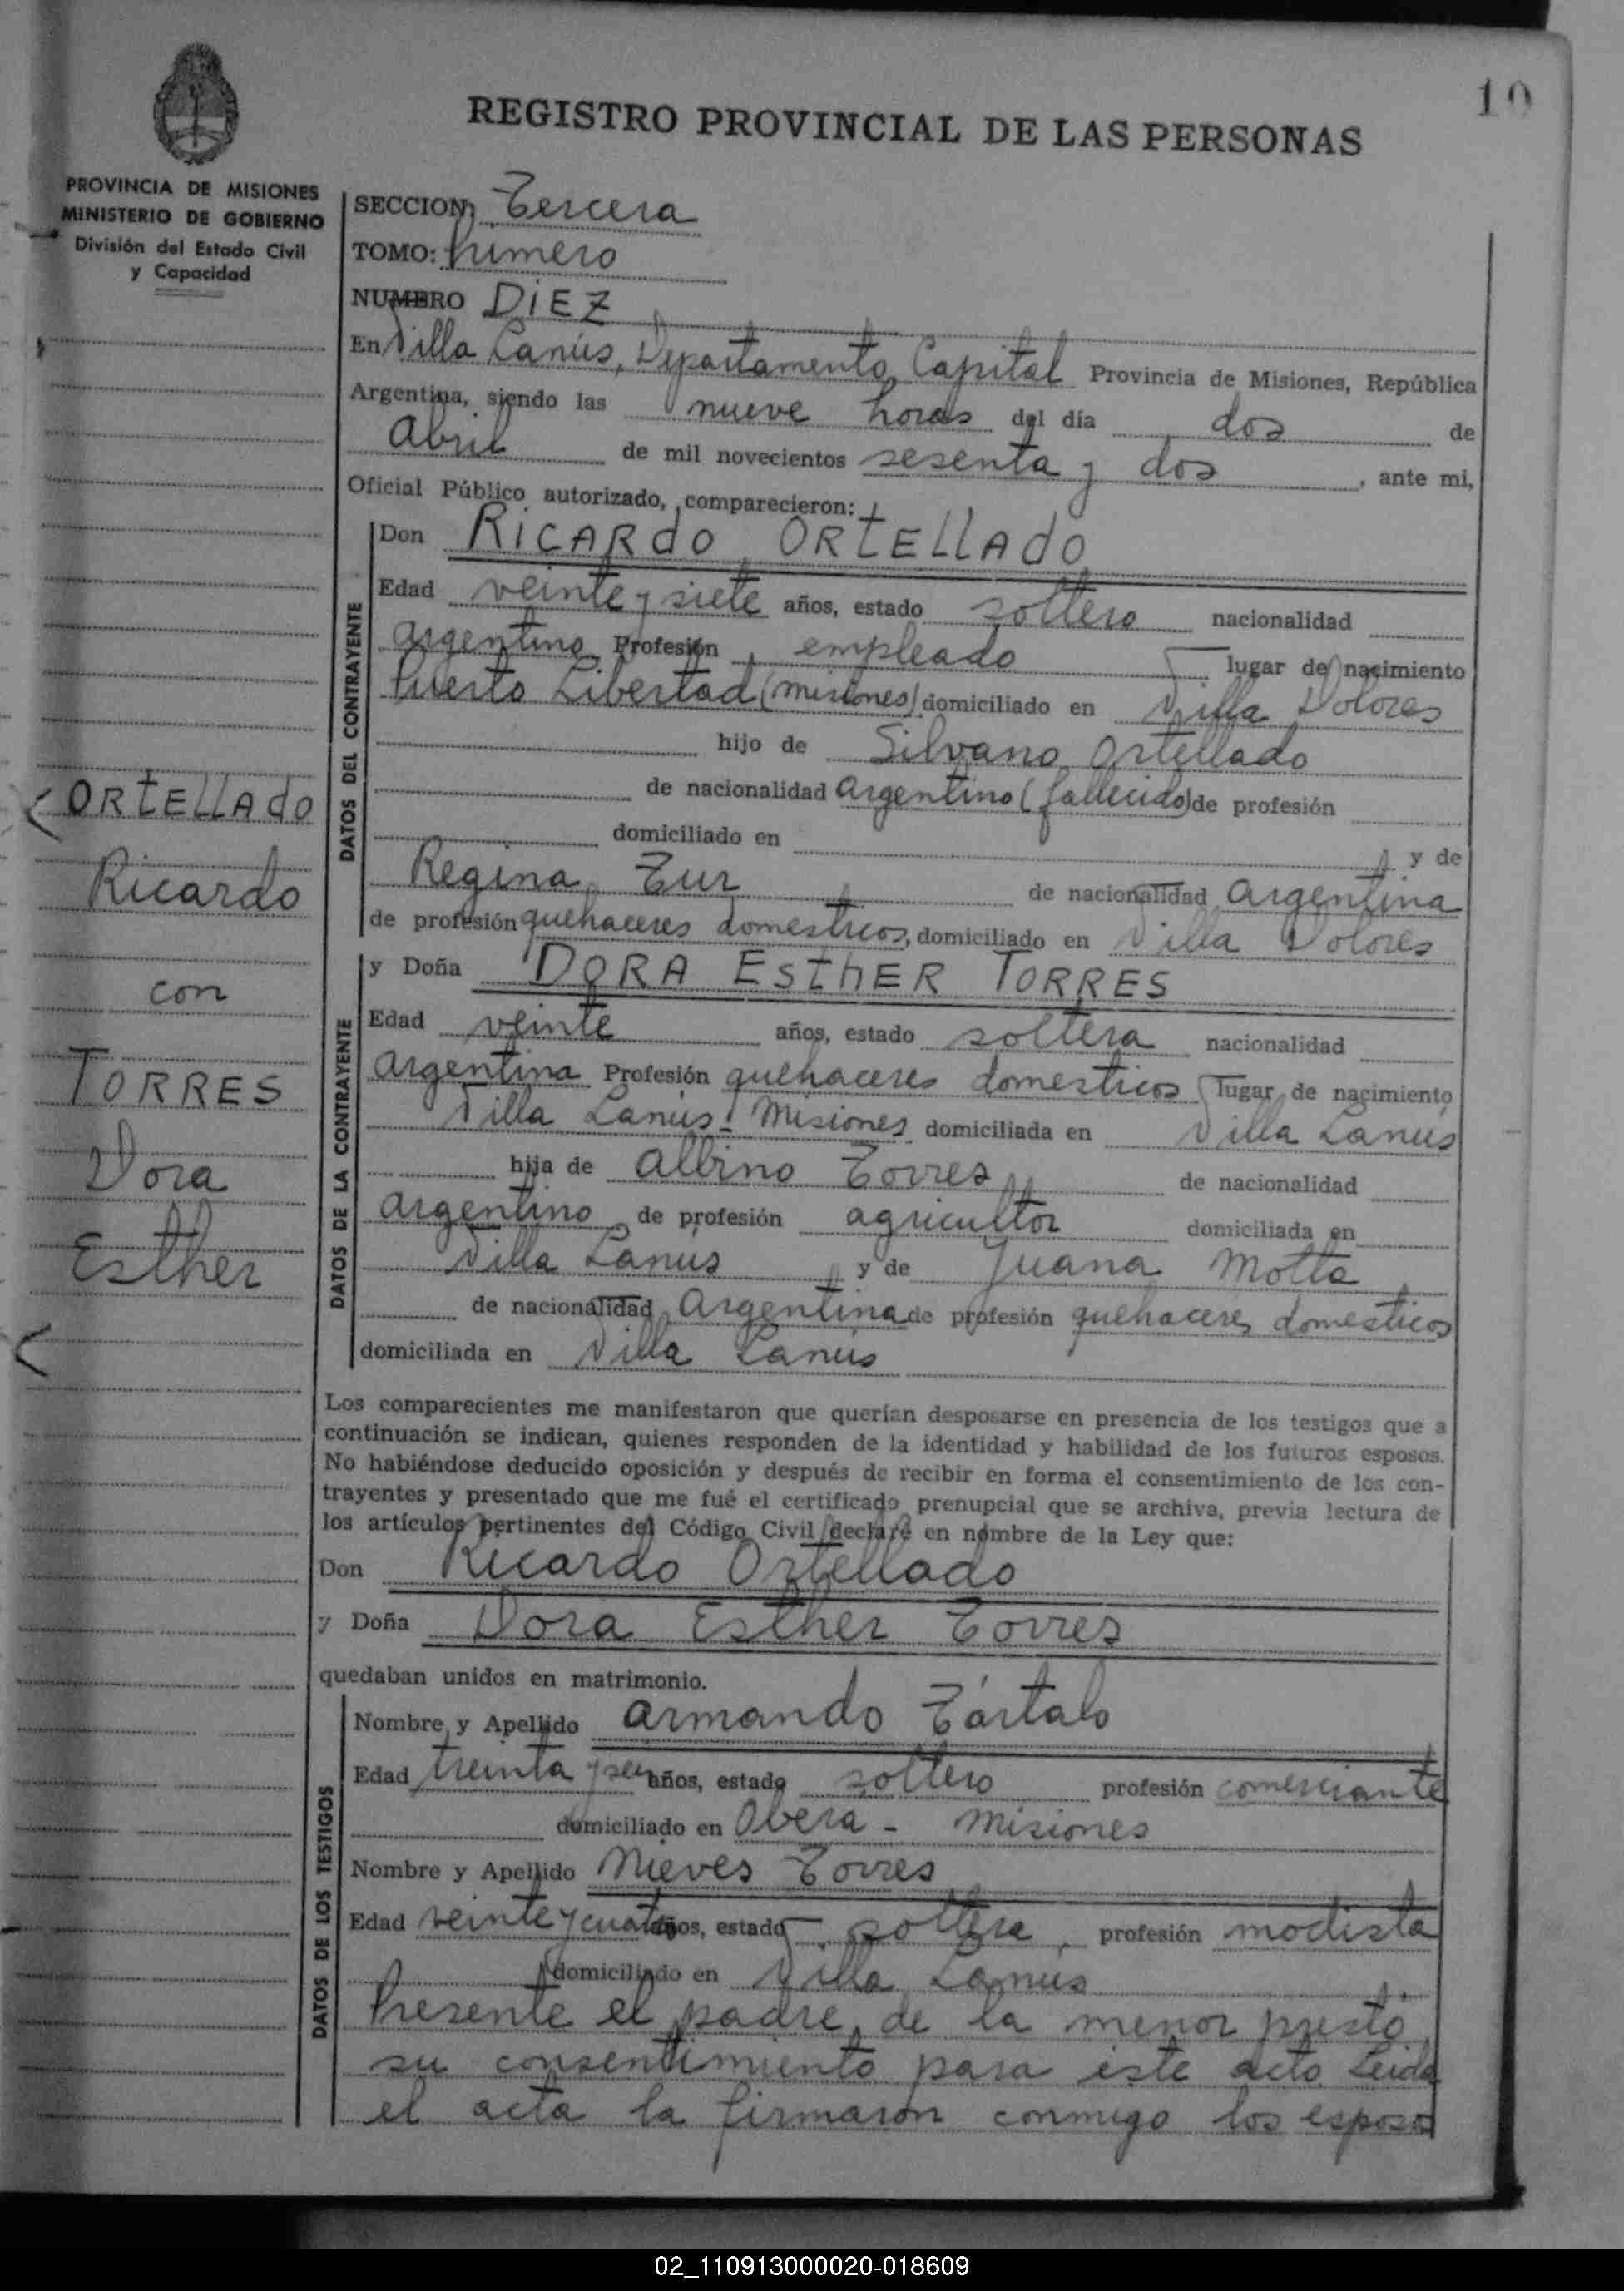 10
REGISTRO PROVINCIAL DE LAS PERSONAS
PROVINCIA DE MISIONES
MINISTERIO DE GOBIERNO
División del Estado Civil
y Capacidad
SECCION Tercera
TOMO: Primero
NUMERO DIEZ
En Villa Lanús, Departamento Capital Provincia de Misiones, República
Argentina, siendo las nueve horas del día dos de
Abril de mil novecientos sesenta y dos, ante mi,
Oficial Público autorizado, comparecieron:
DATOS DEL CONTRAYENTE
Don RICARdO ORTELLAdO
Edad veinte y siete años, estado soltero nacionalidad
argentino Profesión empleado lugar de nacimiento
Puerto Libertad (Misiones) domiciliado en Villa Dolores
hijo de Silvano Ortellado
de nacionalidad Argentino (fallecido) de profesión
domiciliado en y de
Regina Zur de nacionalidad Argentina
de profesión quehaceres domesticos, domiciliado en Villa Dolores
ORTELLAdO
Ricardo
con
TORRES
Dora
Esther
DATOS DE LA CONTRAYENTE
y Doña DORA ESTHER TORRES
Edad veinte años, estado soltera nacionalidad
Argentina Profesión quehaceres domesticos lugar de nacimiento
Villa Lanús - Misiones domiciliada en Villa Lanús
hija de Albino Torres de nacionalidad
argentino de profesión agricultor domiciliada en
Villa Lanús y de Juana Motta
de nacionalidad Argentina de profesión quehaceres domesticos
domiciliada en Villa Lanús
Los comparecientes me manifestaron que querían desposarse en presencia de los testigos que a
continuación se indican, quienes responden de la identidad y habilidad de los futuros esposos.
No habiéndose deducido oposición y después de recibir en forma el consentimiento de los con-
trayentes y presentado que me fué el certificado prenupcial que se archiva, previa lectura de
los artículos pertinentes del Código Civil declaré en nombre de la Ley que:
Don Ricardo Ortellado
y Doña Dora Esther Torres
quedaban unidos en matrimonio.
DATOS DE LOS TESTIGOS
Nombre y Apellido Armando Tártalo
Edad treinta y seis años, estado soltero profesión comerciante
domiciliado en Obera - Misiones
Nombre y Apellido Nieves Torres
Edad veinte y cuatro años, estado soltera, profesión modista
domiciliado en Villa Lanus
Presente el padre de la menor prestó
su consentimiento para este acto. Leida
el acta la firmaron conmigo los esposos
02_110913000020-018609